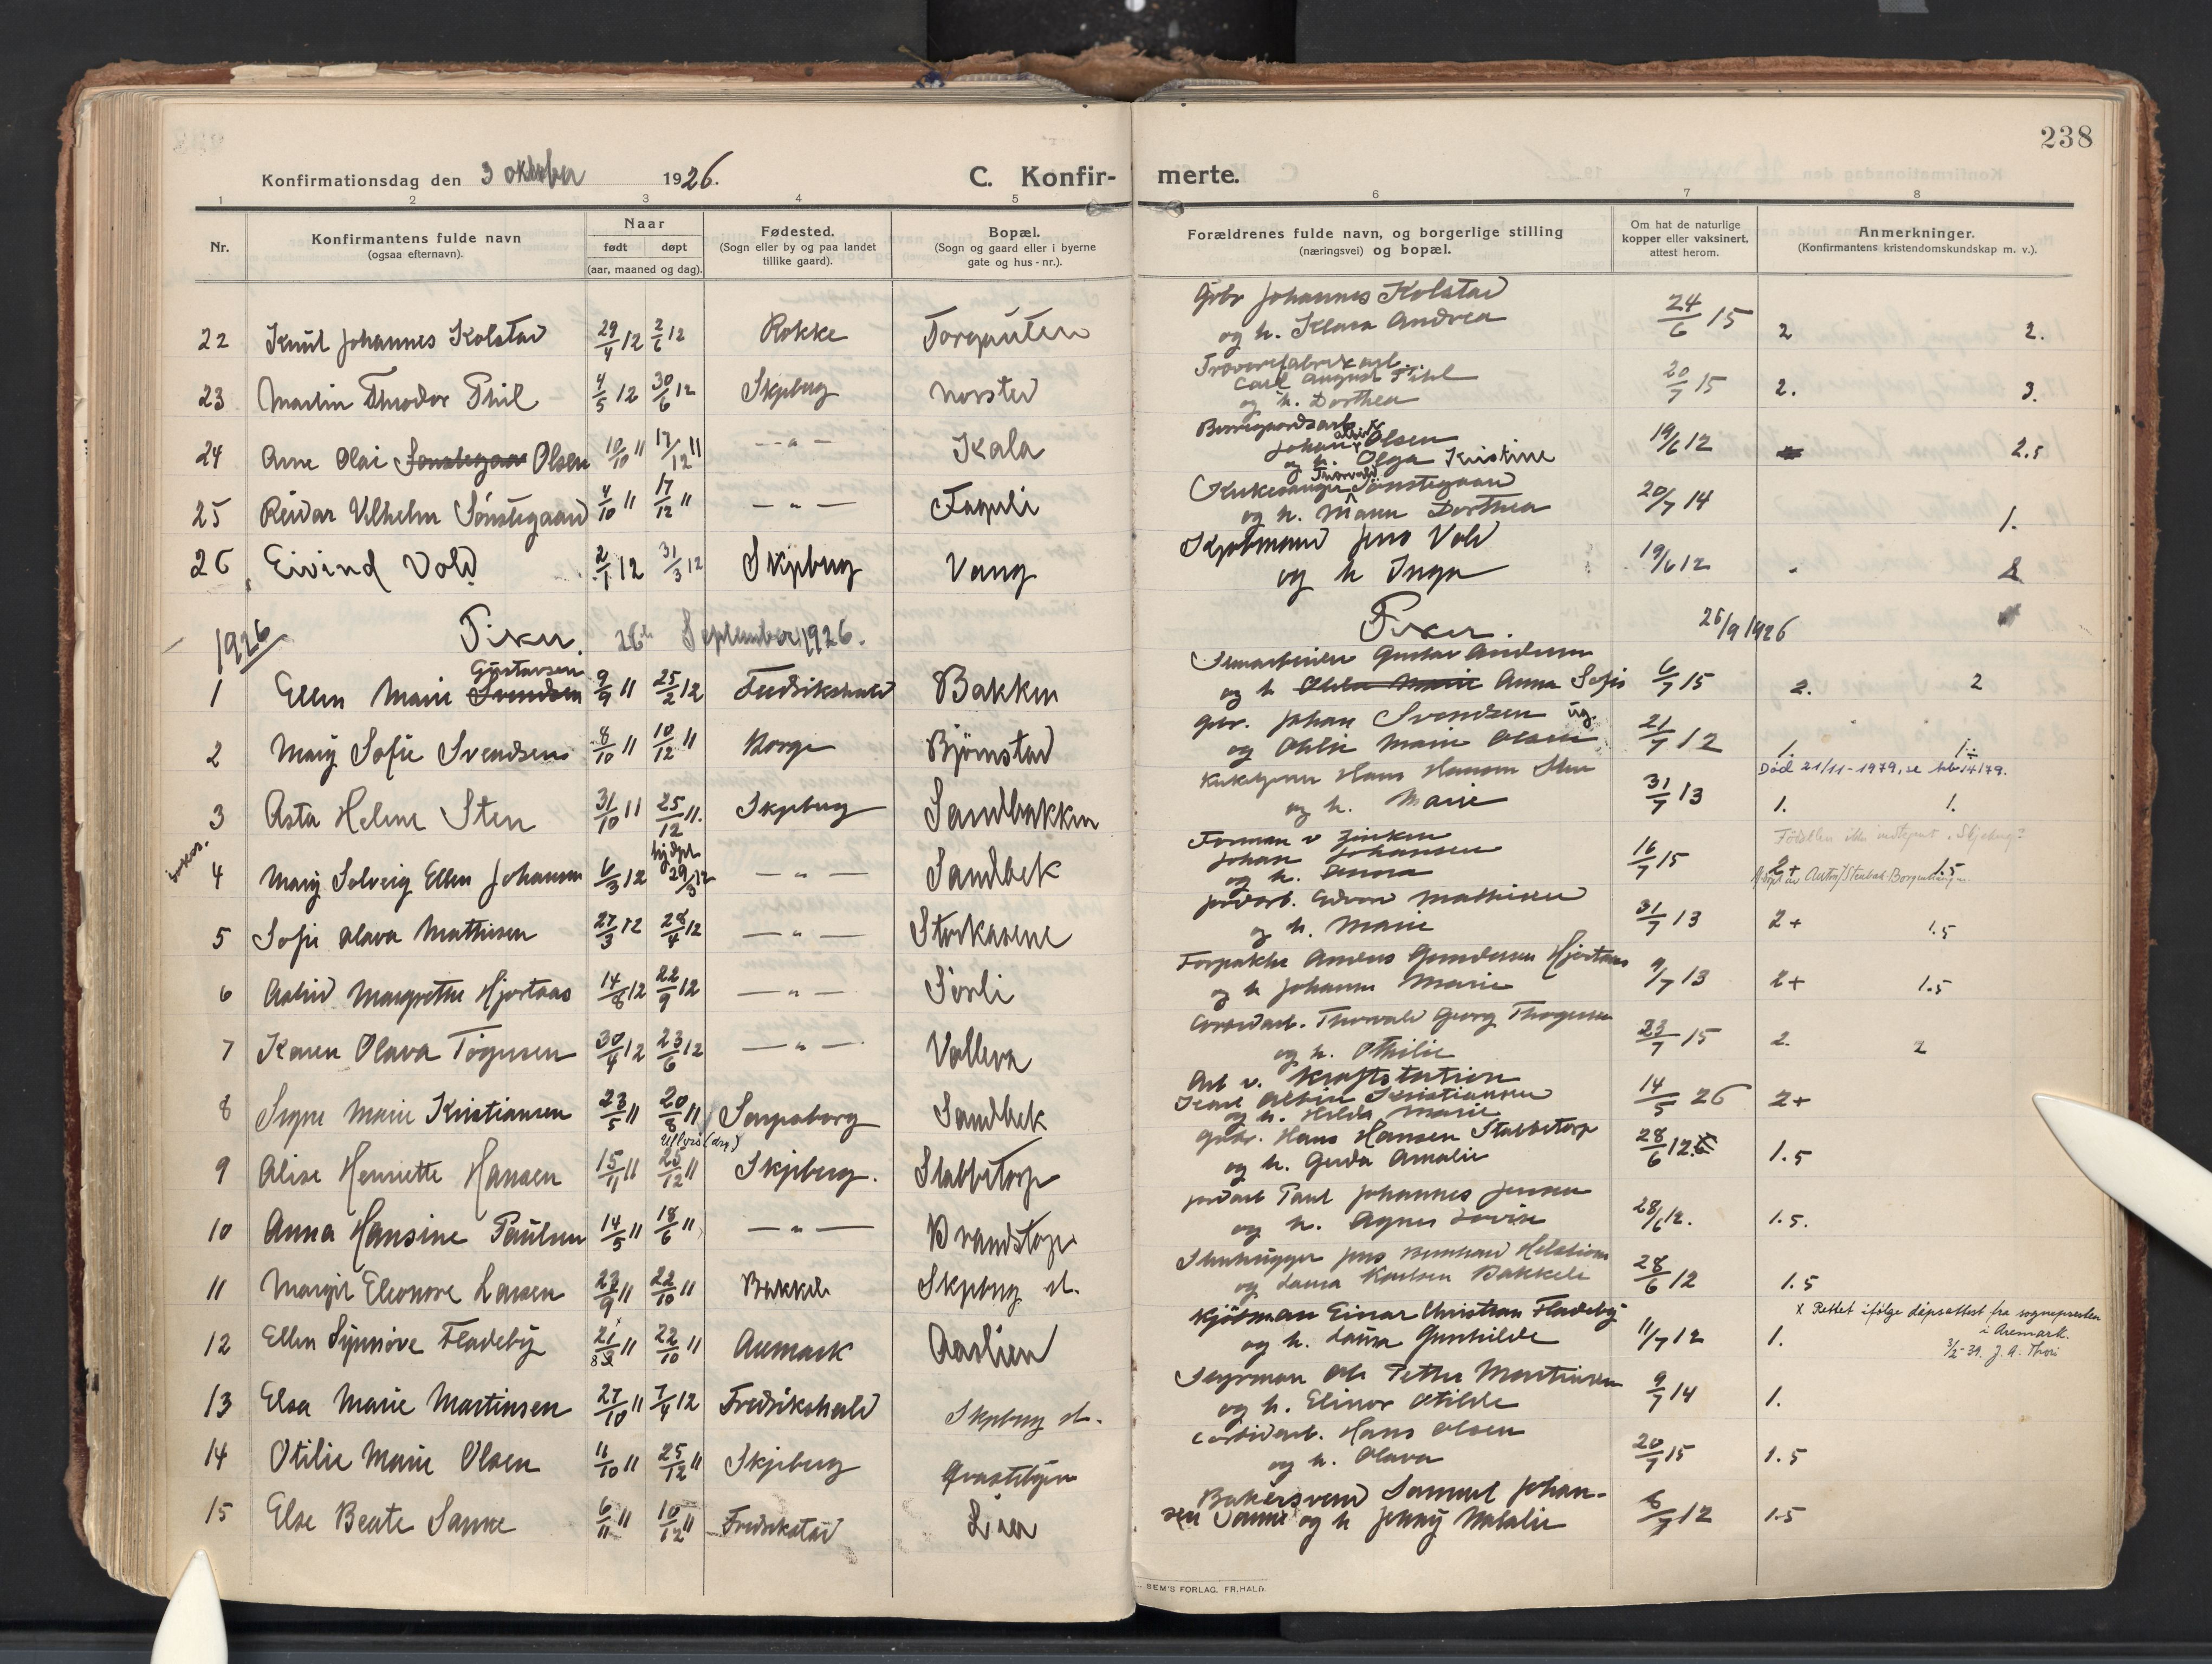 238
Konfirmationsdag den 3 oktober 1926.
C. Konfirmerte.
1 2 3 4 5 6 7 8
Nr.
Konfirmantens fulde navn
(ogsaa efternavn).
Naar
født døpt
(aar, maaned og dag).
Fødested.
(Sogn eller by og paa landet
tillike gaard).
Bopæl.
(Sogn og gaard eller i byerne
gate og hus-nr.).
Forældrenes fulde navn, og borgerlige stilling
(næringsvei) og bopæl.
Om hat de naturlige
kopper eller vaksinert,
attest herom.
Anmerkninger.
(Konfirmantens kristendomskundskap m. v.).
Grbr Johannes Kolstad
22 Knut Johannes Kolstad 29/4 12 2/6 12 Rokke Torgauten og h. Klara Andrea 24/6 15 2 2.
Trævarefabrikarb.
Carl August Pihl
23 Martin Theodor Pihl 4/5 12 30/6 12 Skjeberg Norsted og h. Dorthea 20/7 15 2. 3.
Borregaardsarb
Johan Olsen
24 Arne Olai Sønstegaar Olsen 10/10 11 17/12 11 — " — Kala og h. Olga Kristine 19/6 12 2.5
Kirkesanger Thorvald Sønstegaard
25 Reidar Vilhelm Sønstegaard 4/10 11 17/12 11 — " — Faguli og h. Dorthea 20/7 14 1.
Kjøbmand Jens Vold
26 Eivind Vold 2/1 12 31/3 12 Skjeberg Vang og h Inga 19/6 12 2
1926 Piker. 26de September 1926. Piker. 26/9 1926
Gustavsen
Stenarbeider Gustav Andersen
1 Ellen Marie Svendsen 9/9 11 25/2 12 Fredrikshald Bakken og h Anna Sofie 6/7 15 2. 2
Johan Svendsen ug.
2 Mary Sofie Svendsen 8/10 11 10/12 11 Borge Bjørnstad og Othlie Marie Olsen 21/7 12 1. 1.
Død 21/11-1979, se
Kirketjener Hans Hansen Sten
3 Asta Helene Sten 31/10 11 25/12 11. Skjeberg Sandbakken og h. Marie 31/7 13 1. 1.
Fødselen ikke indtegnet i Skjeberg?
Forman v
hjdpt
Johan Johansen
4 Mary Solveig Ellen Johansen 6/3 12 29/3 12 — " — Sandbek og h. Anna 16/7 15 2+ 1.5
jordarb. Edvard Mathisen
5 Sofie Olava Mathisen 27/3 12 28/4 12 — " — Storkasene og h. Marie 31/7 13 2+ 1.5
Forpakter Anders Gundersen Hjortaas
6 Astrid Margrethe Hjortaas 14/8 12 22/9 12 — " — Sørli og h Johanne Marie 9/7 13 2+ 1.5
Thorvald Georg Thøgersen
7 Karen Olava Tøgersen 30/4 12 23/6 12 — " — Valleva og h. Othilie 23/7 15 2. 2
Arb v. Kraftstation
Karl Albin Kristiansen
8 Signe Marie Kristiansen 23/5 11 20/8 11 Sarpsborg Sandbek og h. Hilda Marie 14/5 26 2+
Hans Hansen Stabbetorp
9 Alise Henriette Hansen 15/11 11 25/12 11 Skjeberg. Stabbetorp og h. Gerda Amalie 28/6 12 1.5
jordarb Paul Johannes Jensen
10 Anna Hansine Paulsen 14/5 11 18/6 11 — " — Brandstorp og h. Agnes Lovise 28/6 12. 1.5.
Stenhugger Jens Bernhard
11 Margit Eleonore Larsen 23/9 11 22/10 11 Bakkeli Skjeberg st. og Laura Karlsen Bakkeli 28/6 12 1.5
x Rettet ifølge dåpsattest fra sognepresten
i Aremark.
3/2-39. J. A. Thori
Kjøbman Einar Christian Fladeby
12 Ellen Synnøve Fladeby 21/8 11 22/10 11 Aremark Aaslien og h. Laura Gunhilde 11/7 12 1.
Styrman Petter Martinsen
13 Elsa Marie Martinsen 27/10 11 7/4 12 Fredrikshald Skjeberg st. og h. Elinor Otilde 9/7 14 1.
Hans Olsen
14 Otilie Marie Olsen 11/10 11 25/12 11 Skjeberg og h. Olava 20/7 15 1.5
Bakersvend Samuel Johan-
15 Else Beate Sanne 6/11 11 10/12 11 Fredrikstad Lien sen Sanne og h Jenny Natalie 6/7 12 1.5
SEM'S FORLAG, FR.HALD.